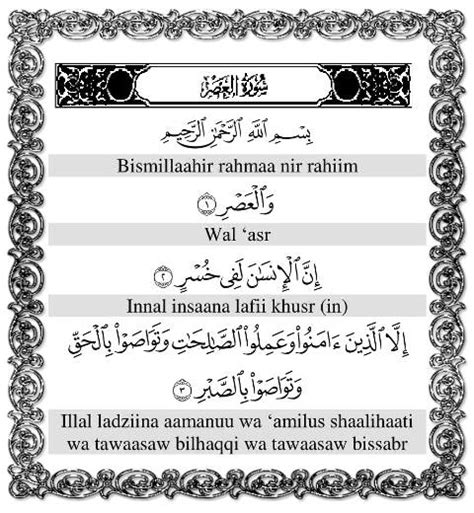 سُورَةُ العَصْرِ
بِسْمِ اللَّهِ الرَّحْمَٰنِ الرَّحِيمِ
Bismillaahir rahmaa nir rahiim
وَٱلْعَصْرِ ١
Wal ‘asr
إِنَّ ٱلْإِنسَٰنَ لَفِى خُسْرٍ ٢
Innal insaana lafii khusr (in)
إِلَّا ٱلَّذِينَ ءَامَنُوا۟ وَعَمِلُوا۟ ٱلصَّٰلِحَٰتِ وَتَوَاصَوْا۟ بِٱلْحَقِّ
وَتَوَاصَوْا۟ بِٱلصَّبْرِ ٣
Illal ladziina aamanuu wa ‘amilus shaalihaati
wa tawaasaw bilhaqqi wa tawaasaw bissabr